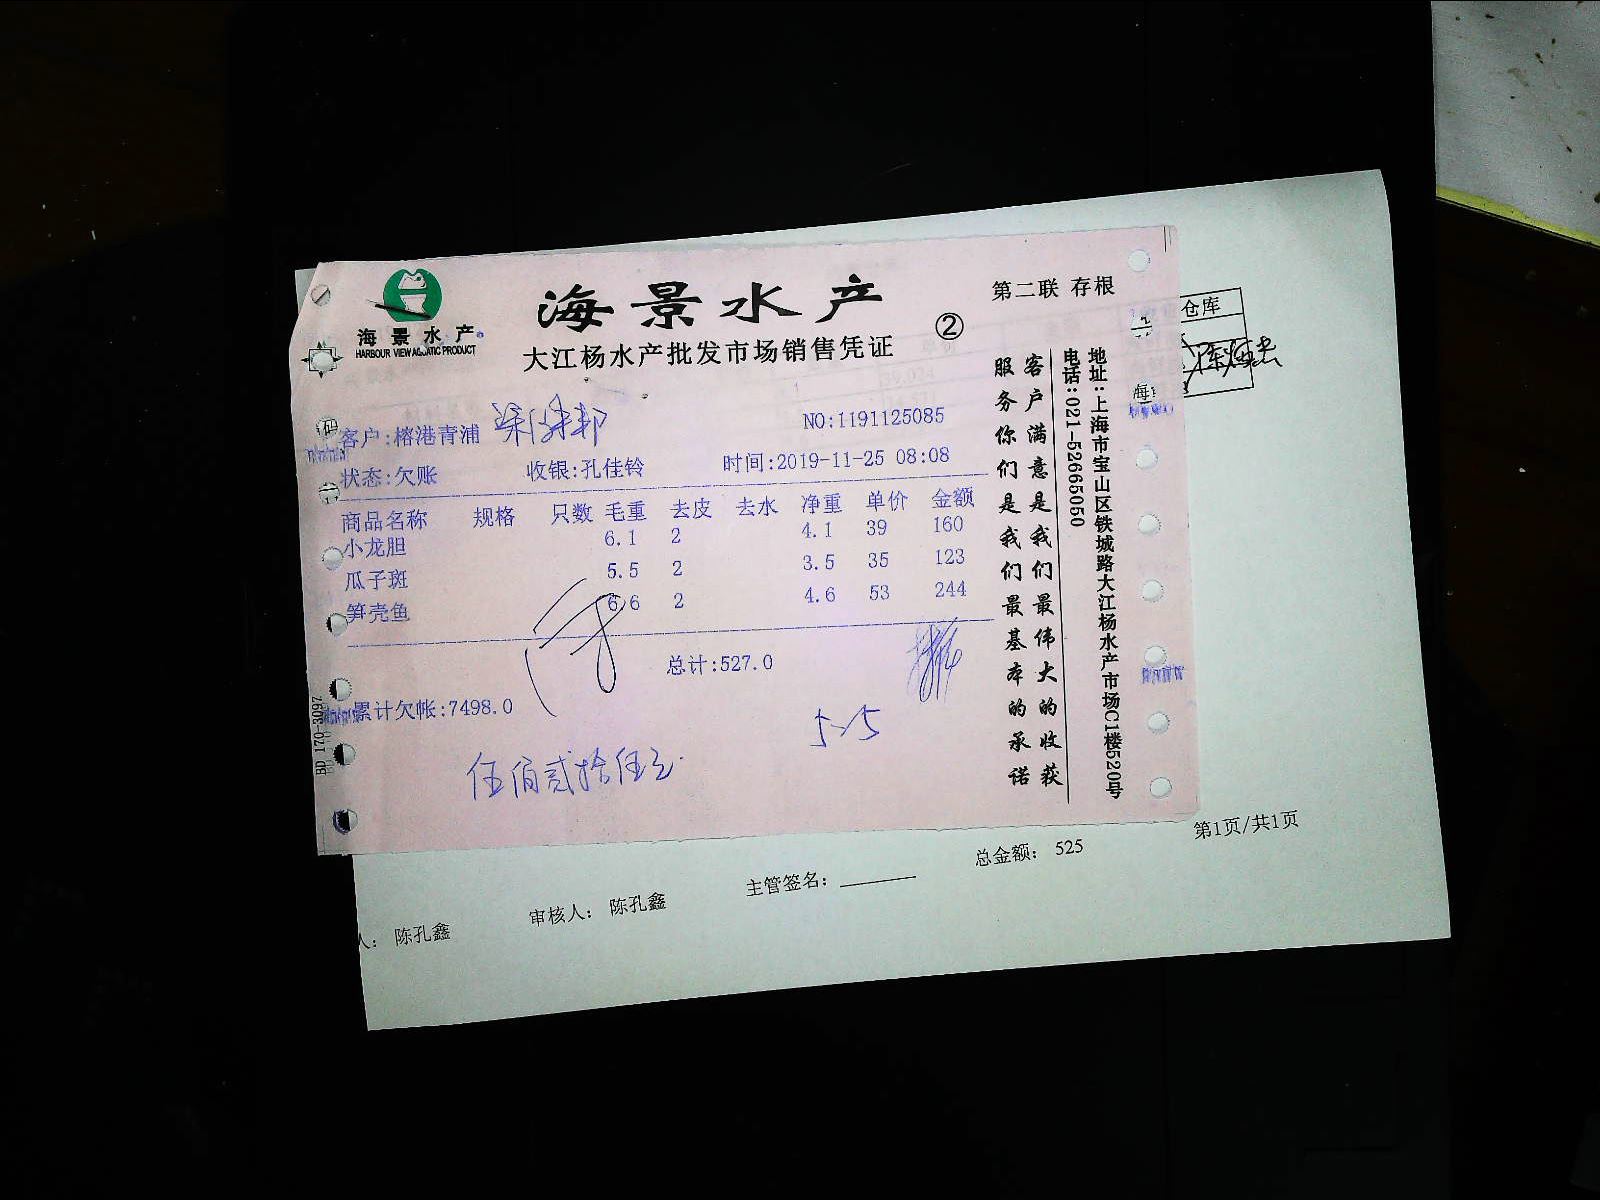 海景水产
HARBOUR VIEW AQUATIC PRODUCT
海景水产
大江杨水产批发市场销售凭证
②
第二联 存根
客户:榕港青浦
NO:1191125085
状态:欠账 收银:孔佳铃 时间:2019-11-25 08:08
商品名称 规格 只数 毛重 去皮 去水 净重 单价 金额
小龙胆 6.1 2 4.1 39 160
瓜子斑 5.5 2 3.5 35 123
笋壳鱼 6.6 2 4.6 53 244
总计:527.0
累计欠帐:7498.0
525
伍佰贰拾伍元
客户满意是我们最伟大的收获
服务你们是我们最基本的承诺
地址:上海市宝山区铁城路大江杨水产市场C1楼520号
电话:021-52665050
BD 170-3097
仓库
总金额: 525
第1页/共1页
人: 陈孔鑫 审核人: 陈孔鑫 主管签名: